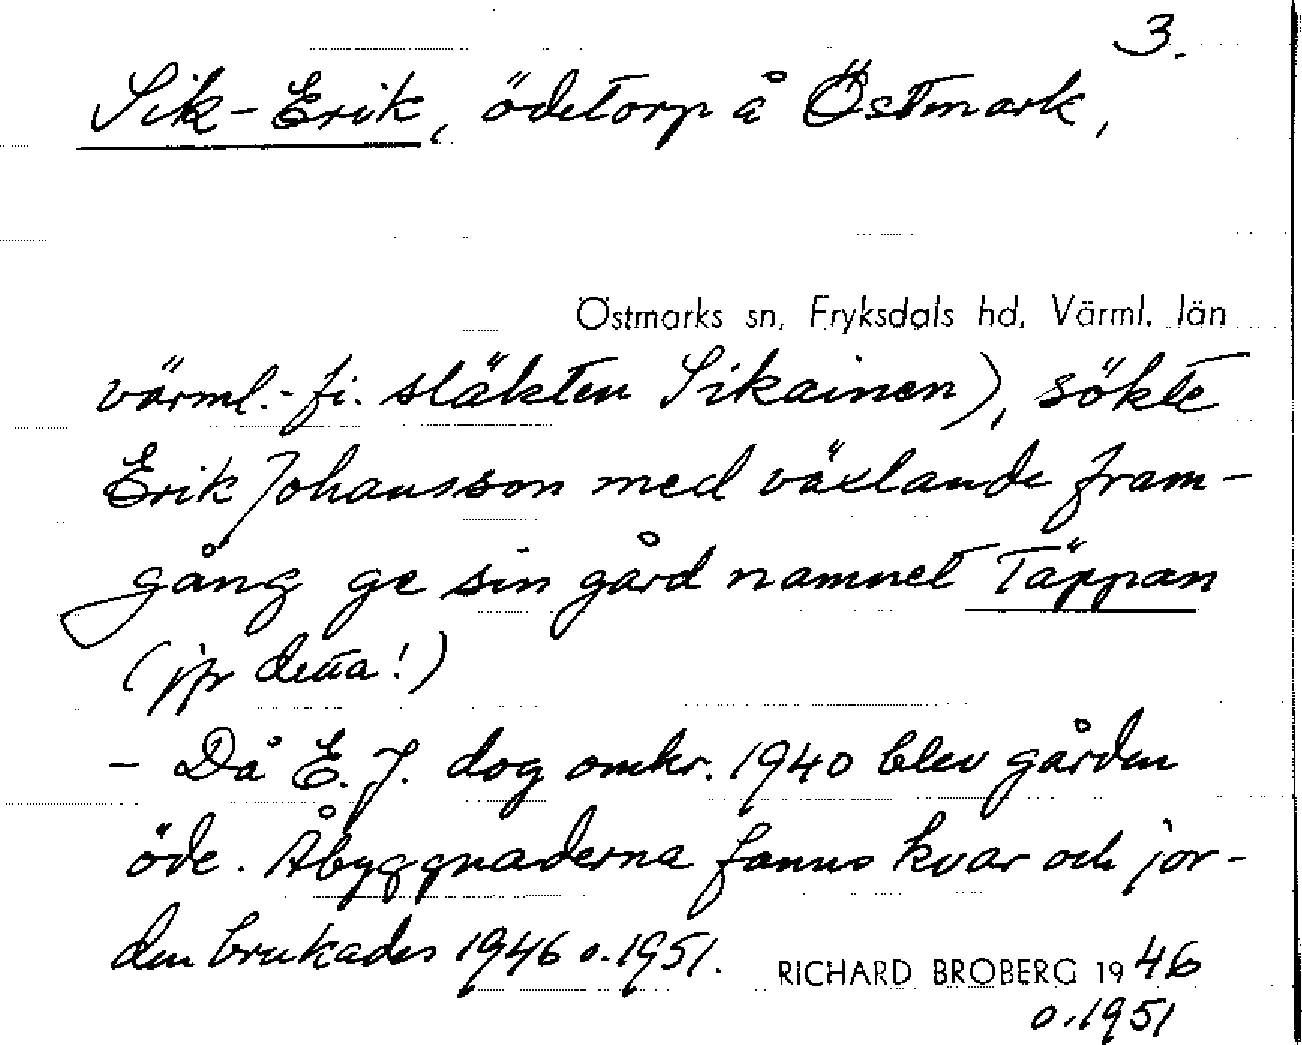 3.
Sik-Erik, ödetorp å Östmark,
Östmarks sn, Fryksdals hd, Värml. län
värml.-fi. släkten Sikainen), sökte
Erik Johansson med växlande fram-
gång ge sin gård namnet Täppan
(jfr detta!)
- Då E. J. dog omkr. 1940 blev gården
öde. Åbyggnaderna fanns kvar och jor-
den brukades 1946 o. 1951.
RICHARD BROBERG 1946
o. 1951